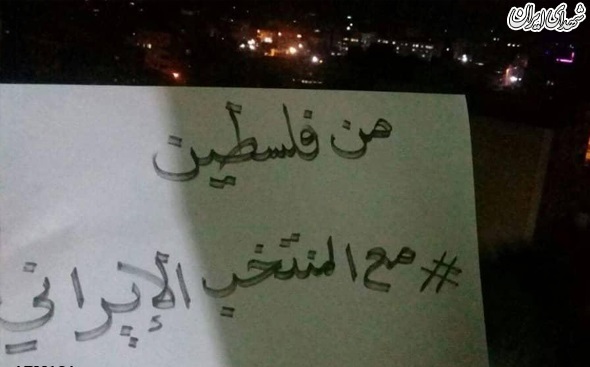 شهدای ایران
من فلسطين
#مع المنتخب الإيراني